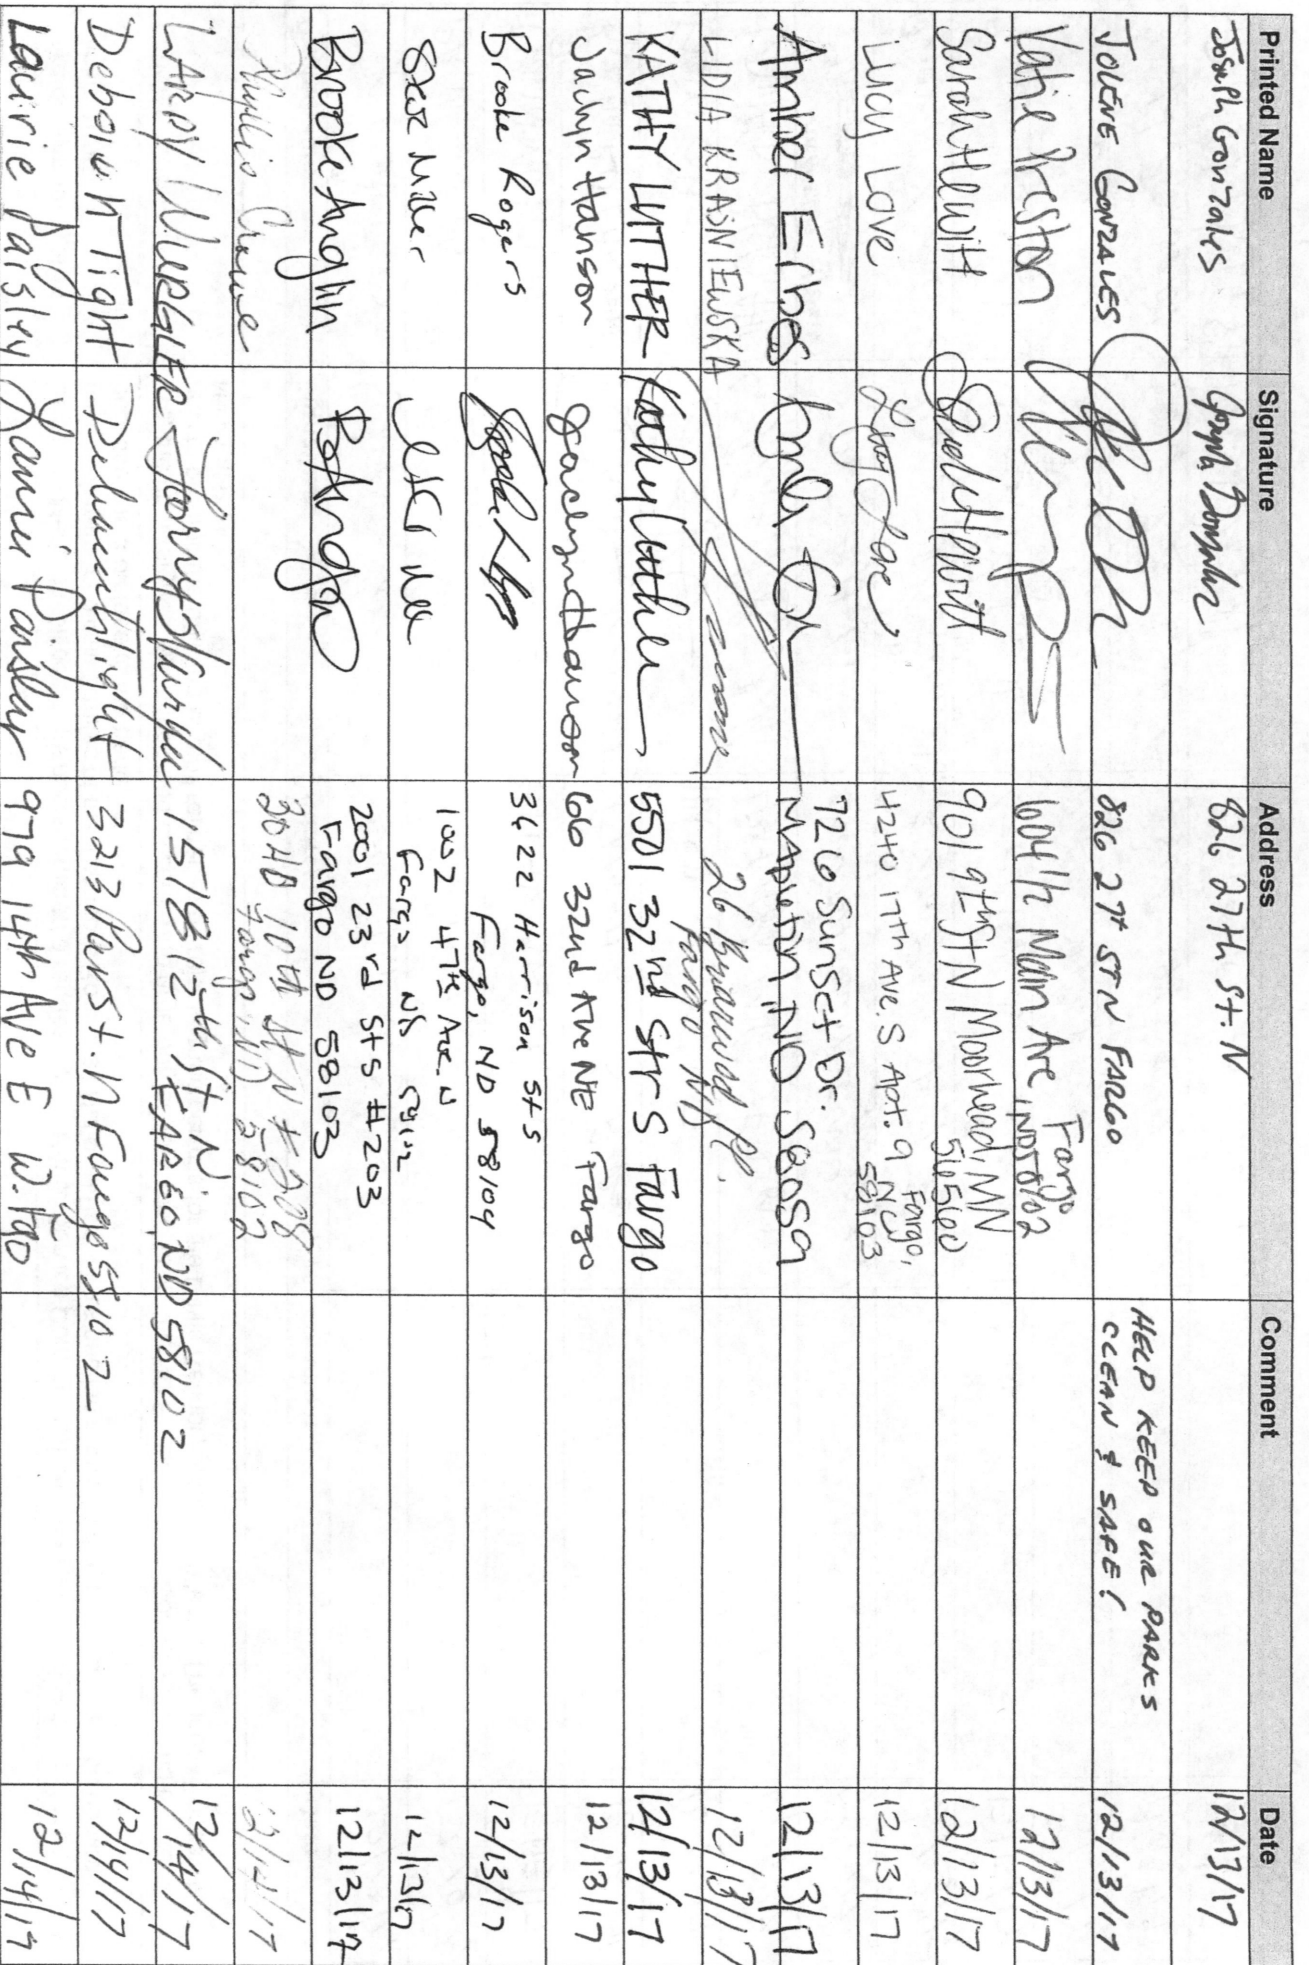 Printed Name Signature Address Comment Date
Joseph Gonzales 826 27th St. N 12/13/17
JOLENE GONZALES 826 27th ST N FARGO HELP KEEP OUR PARKS
CLEAN & SAFE! 12/13/17
Katie Preston 604 1/2 Main Ave, Fargo
ND 58102 12/13/17
Sarah Hewitt Sarah Hewitt 901 9th St N Moorhead, MN
56560 12/13/17
Lucy Love Lucy Love 4240 17th Ave. S Apt. 9 Fargo,
58103 12/13/17
Amber Erbes 726 Sunset Dr.
Mapleton, ND 58059 12/13/17
LIDIA KRASNIEWSKA 26 Pl.
Fargo ND 12/13/17
KATHY LUTHER Kathy Luther 5501 32nd Str S Fargo 12/13/17
Jaclyn Hanson Jaclyn Hanson 66 32nd Ave NE Fargo 12/13/17
Brooke Rogers 3422 Harrison St S
Fargo, ND 58104 12/13/17
Miller 1002 47th Ave N
Fargo ND 58102 12/13/17
Brooke Anglin 2001 23rd St S #203
Fargo ND 58103 12/13/17
Phyllis 10th St N #208
Fargo, ND 58102 12/14/17
LARRY 1518 12th St N
FARGO, ND 58102 12/14/17
Deborah Tight Deborah Tight 3213 St. N Fargo 58102 12/14/17
Laurie Paisley Laurie Paisley 979 14th Ave E W. Fgo 12/14/17